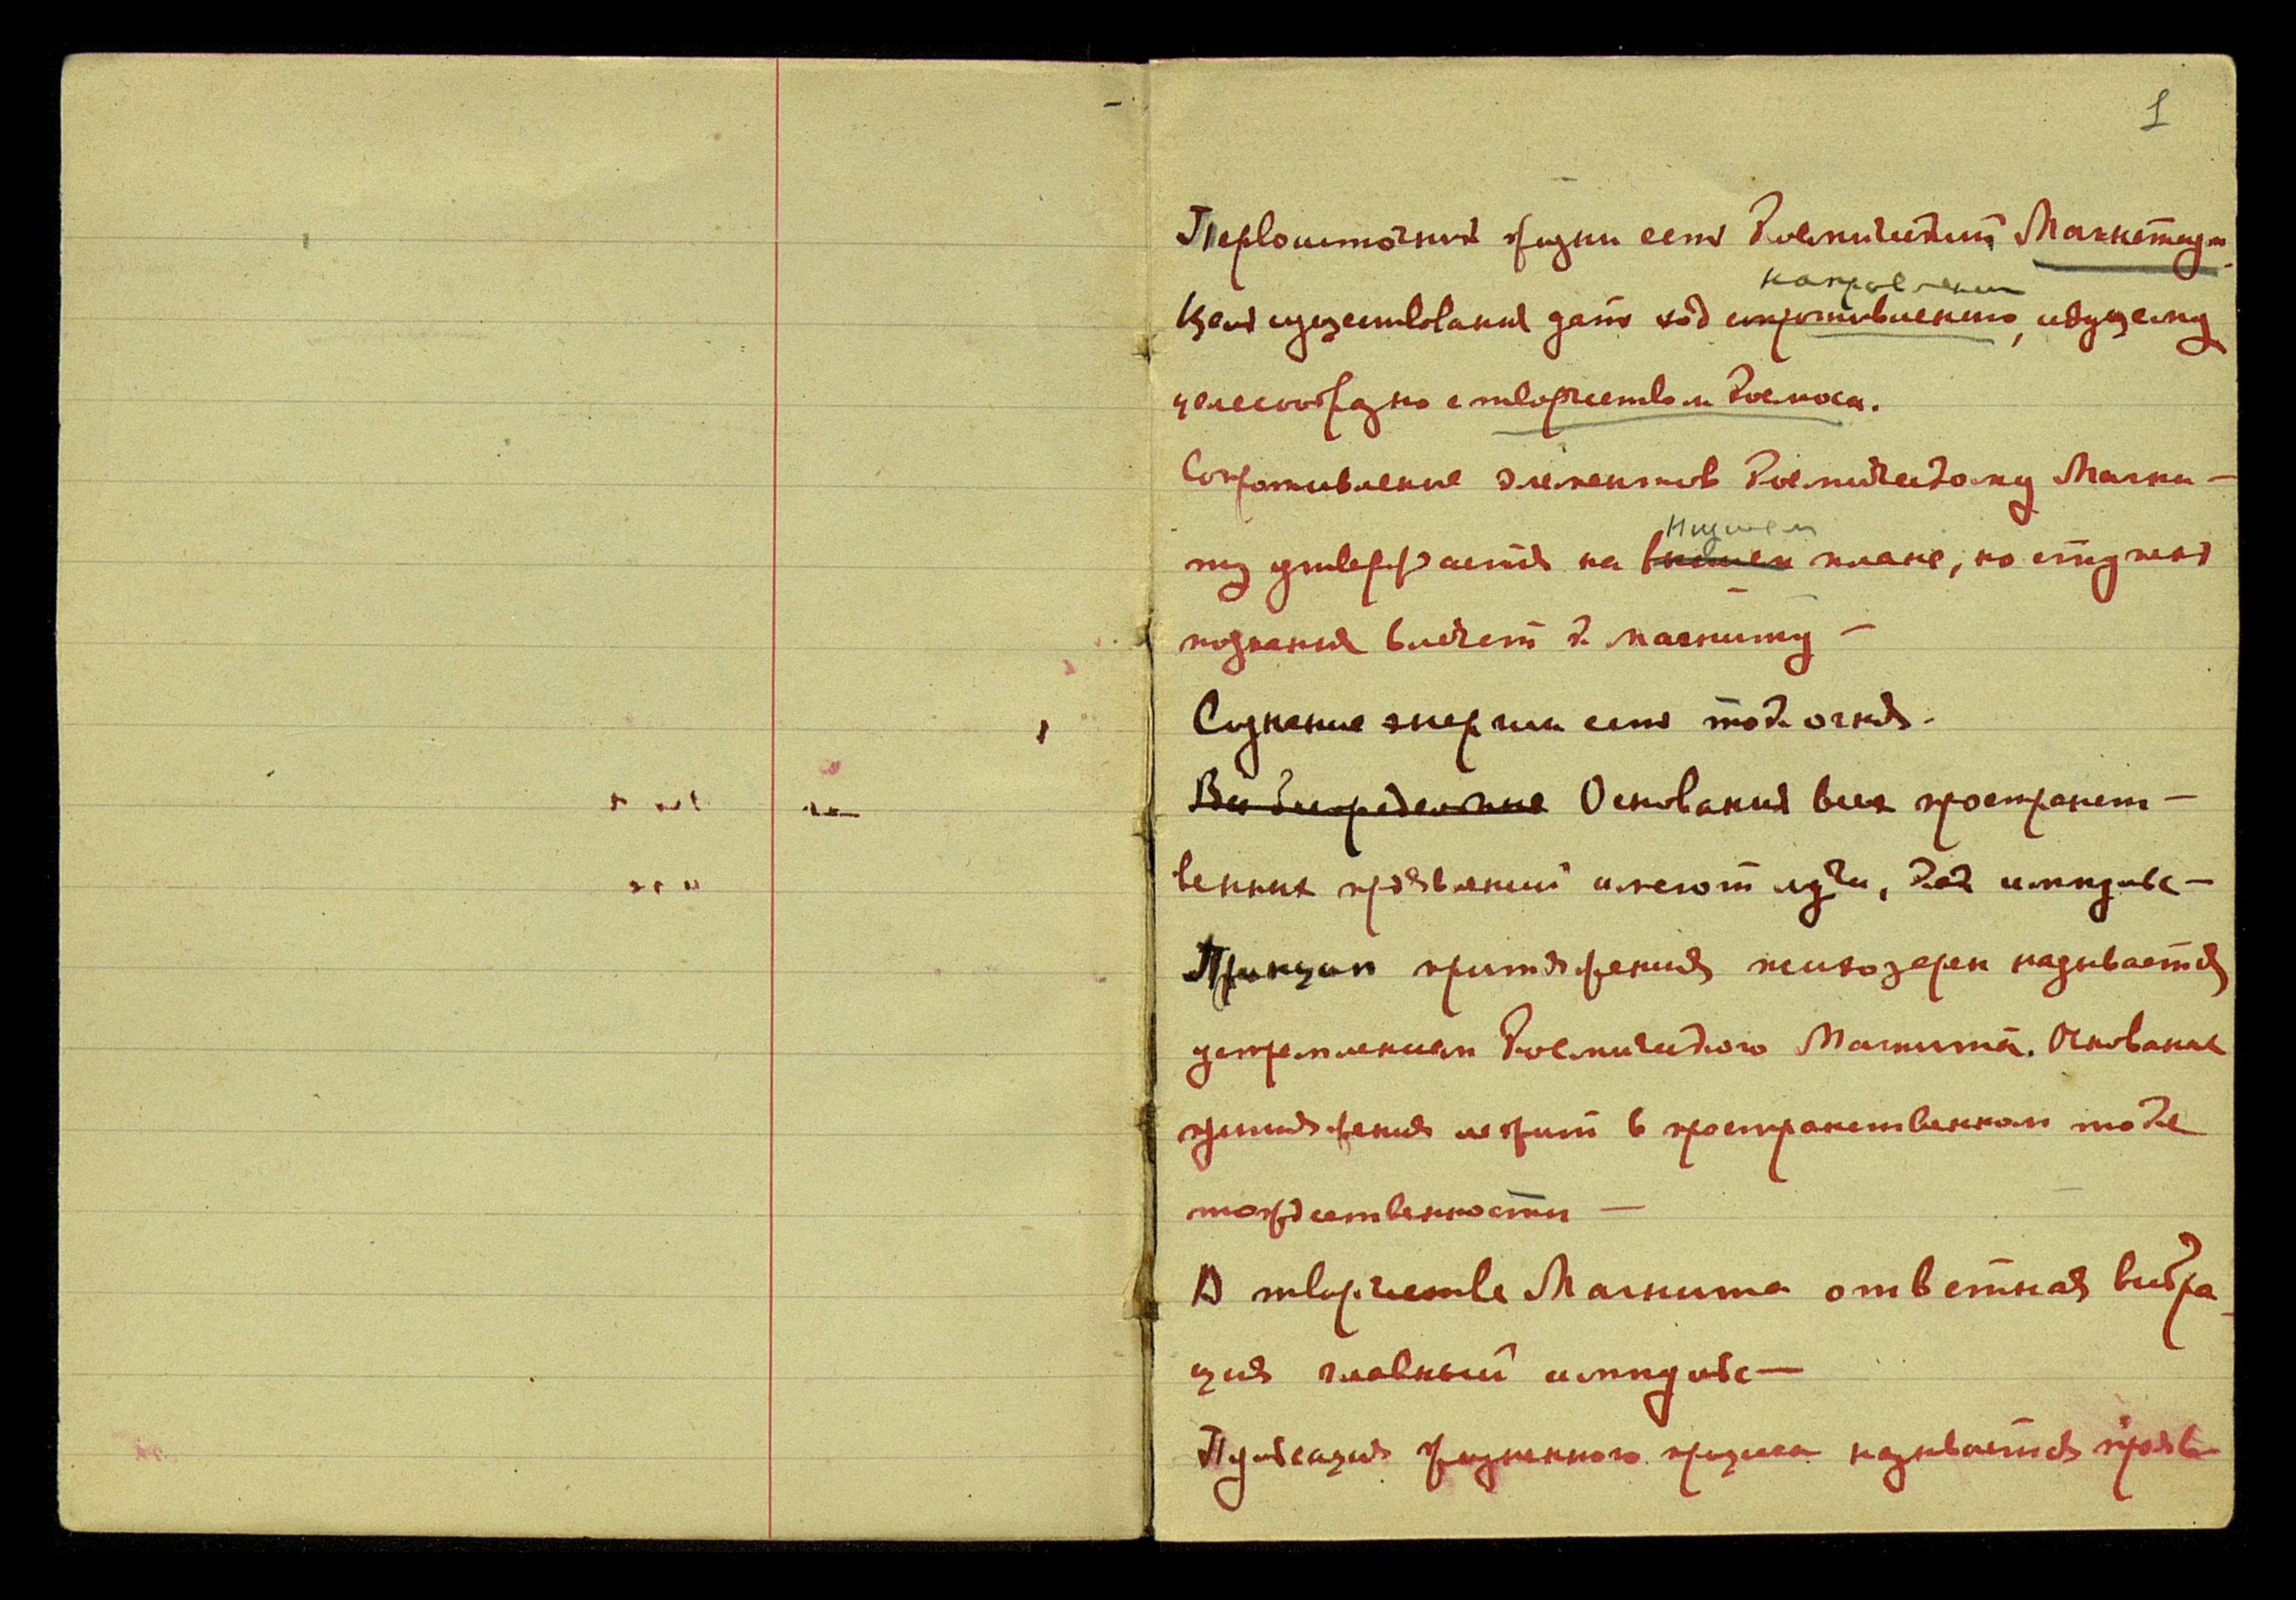 1
Первоисточник жизни есть Космический Магнетизм.
направлению
Цель существования дать ход сопротивлению, идущему
целесообразно с творчеством Космоса.
Сопротивление элементов Космическому Магни-
Низшем
ту утверждается на внешнем плане, но ступень
познания влечет к магниту —
Сознание энергии есть ток огня.
Все Основания всех пространст-
венных проявлений имеют лучи, как импульс —
Принцип притяжения психозерен называется
устремлением Космического Магнита. Основание
притяжения лежит в пространственном токе
тождественности —
В творчестве Магнита ответная вибра-
ция главный импульс —
Пульсация жизненного называется прояв-